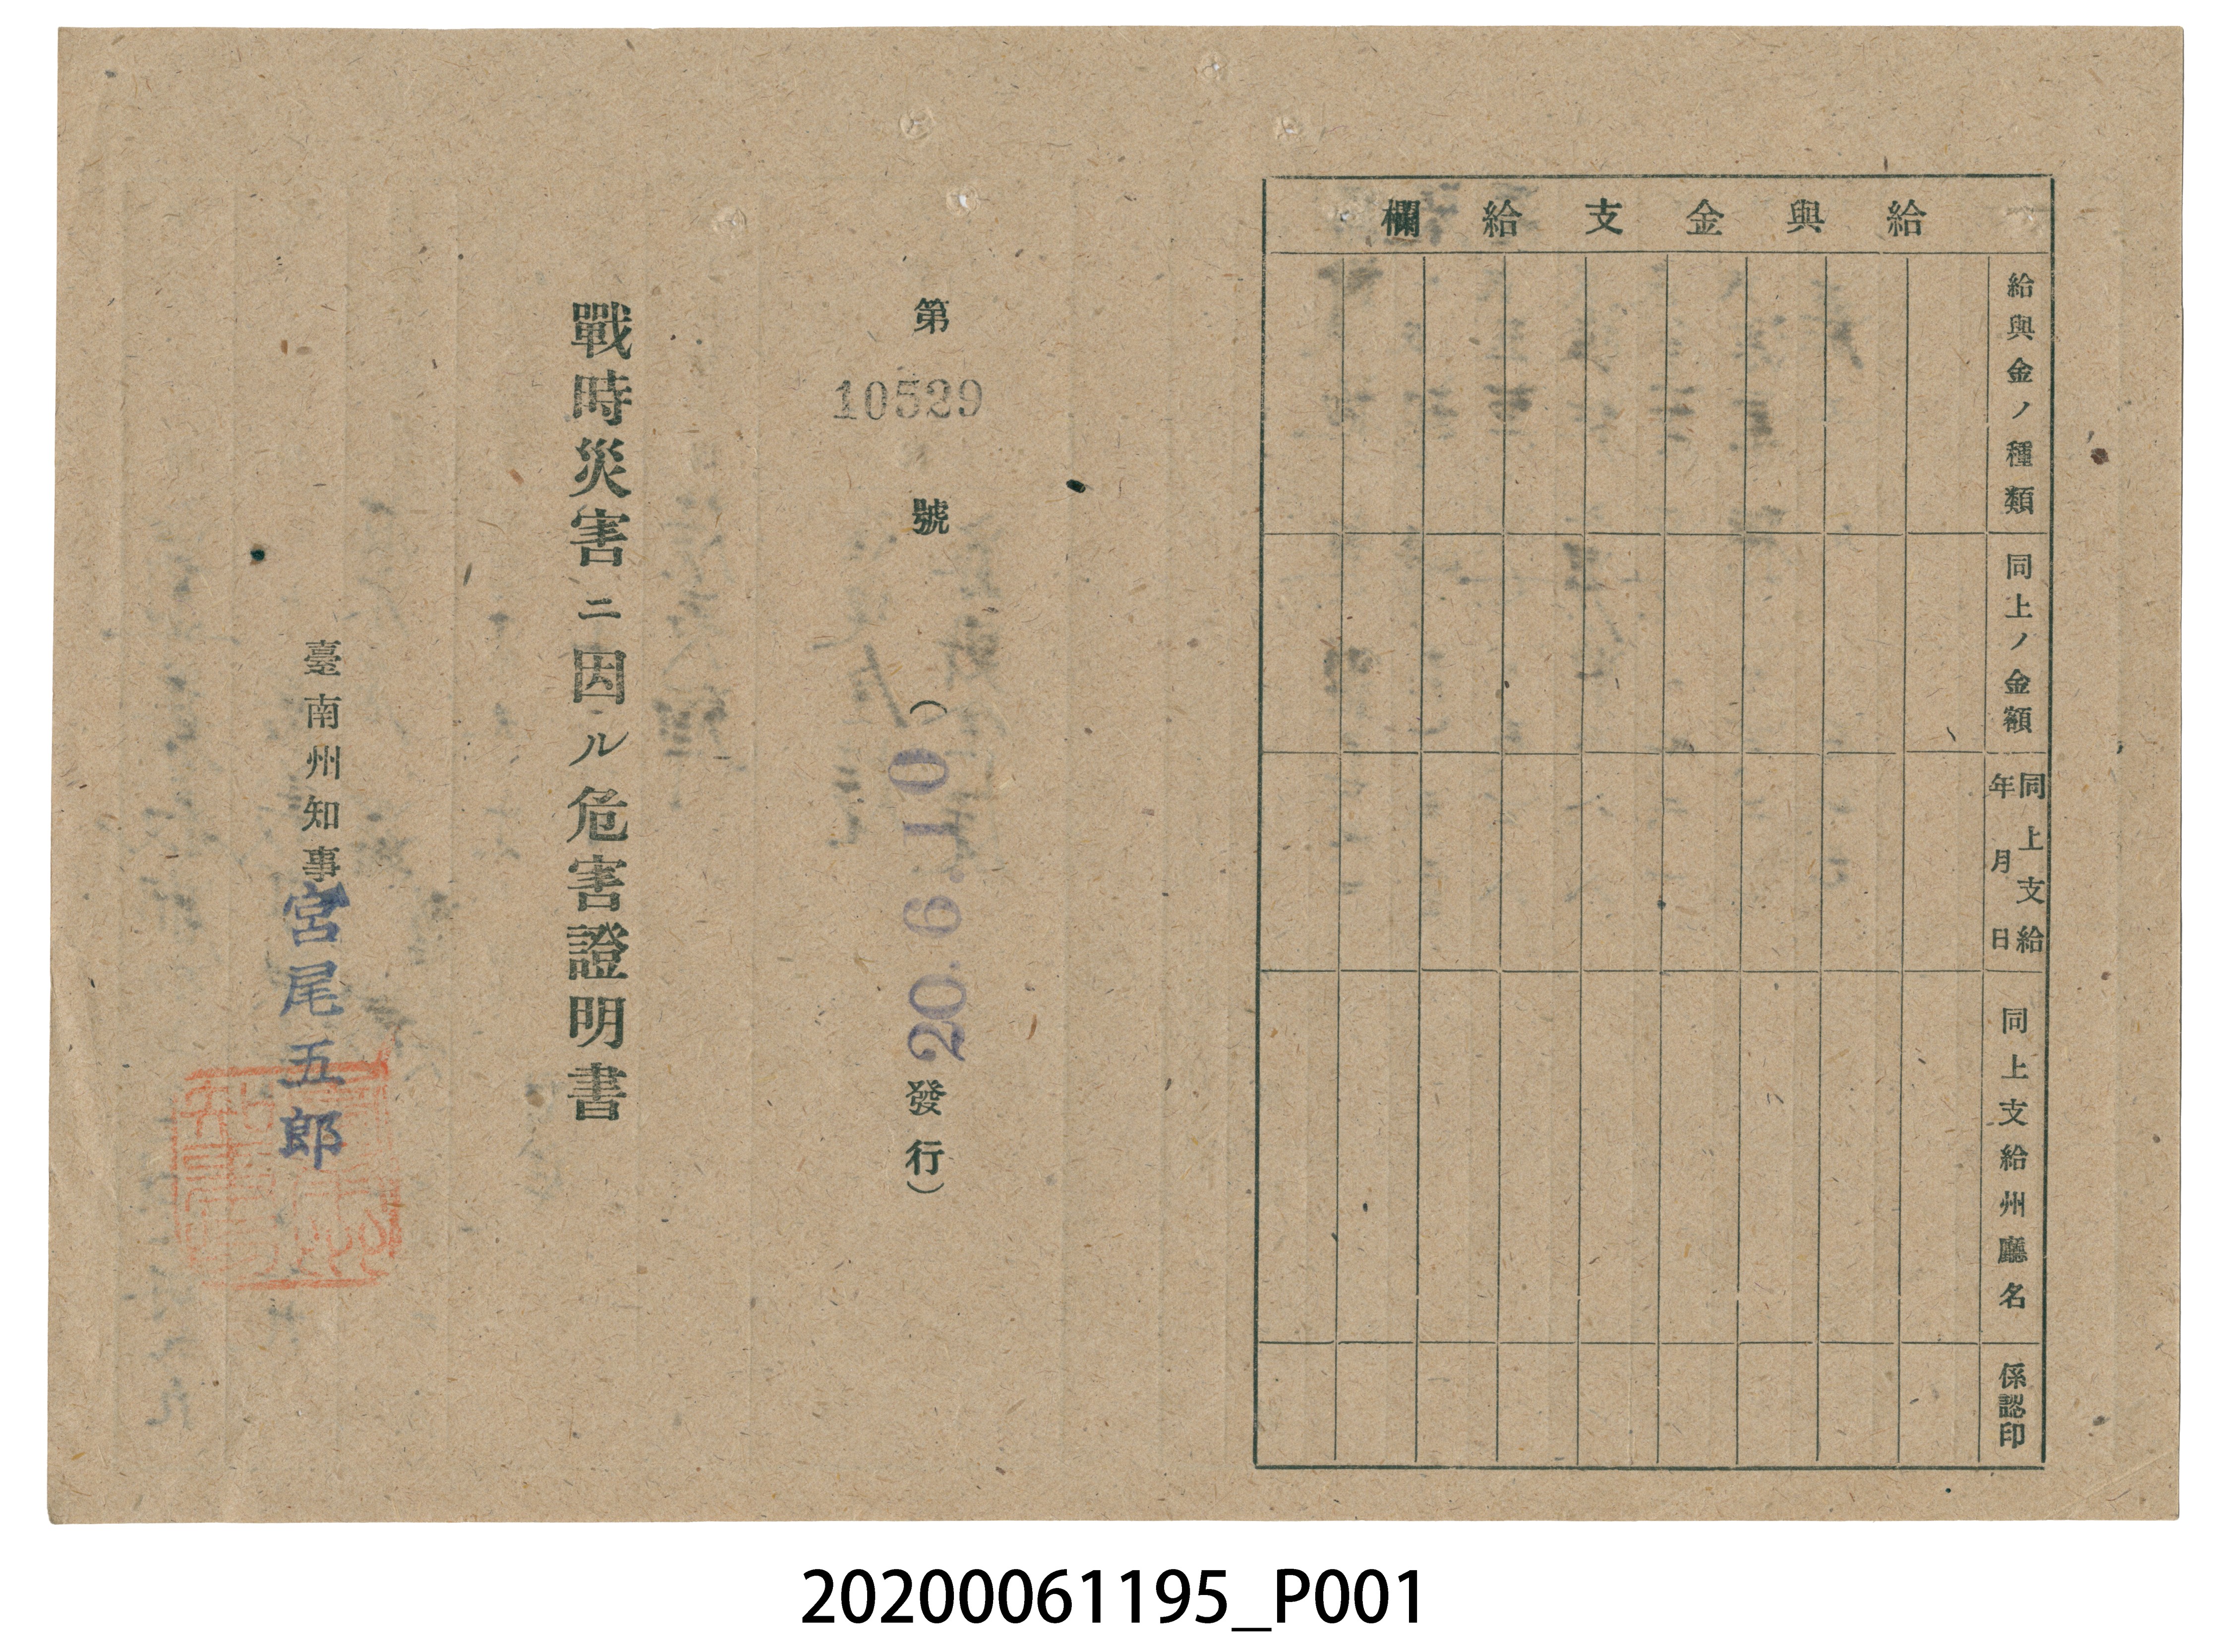 給與金支給欄
給與金ノ種類
同上ノ金額
同上支給
年月日
同上支給州廳名
係認印
第10529號
(20.6.10發行)
戰時災害ニ因ル危害證明書
臺南州知事宮尾五郎
20200061195_P001